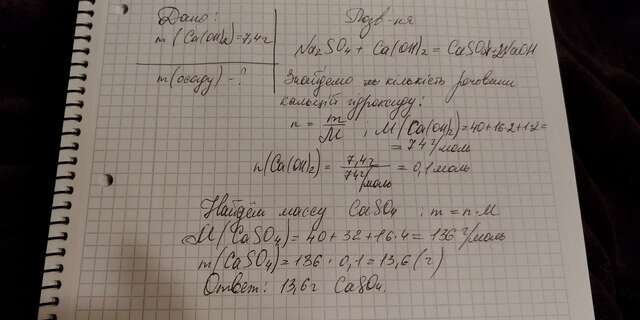 Дано:
m (Ca(OH)₂)=7,4г
m(осаду) - ?
Розв-ня
Na₂SO₄ + Ca(OH)₂ = CaSO₄+2NaOH
Знайдемо кількість речовини
кальцій гідроксиду:
n = m/M ; M(Ca(OH)₂)=40+16·2+1·2=
= 74 г/моль
n(Ca(OH)₂) = 7,4г/74г/моль = 0,1 моль
Найдём массу CaSO₄ ; m = n·M
M(CaSO₄)=40+32+16·4=136 г/моль
m(CaSO₄)=136·0,1=13,6(г)
Ответ: 13,6г CaSO₄.